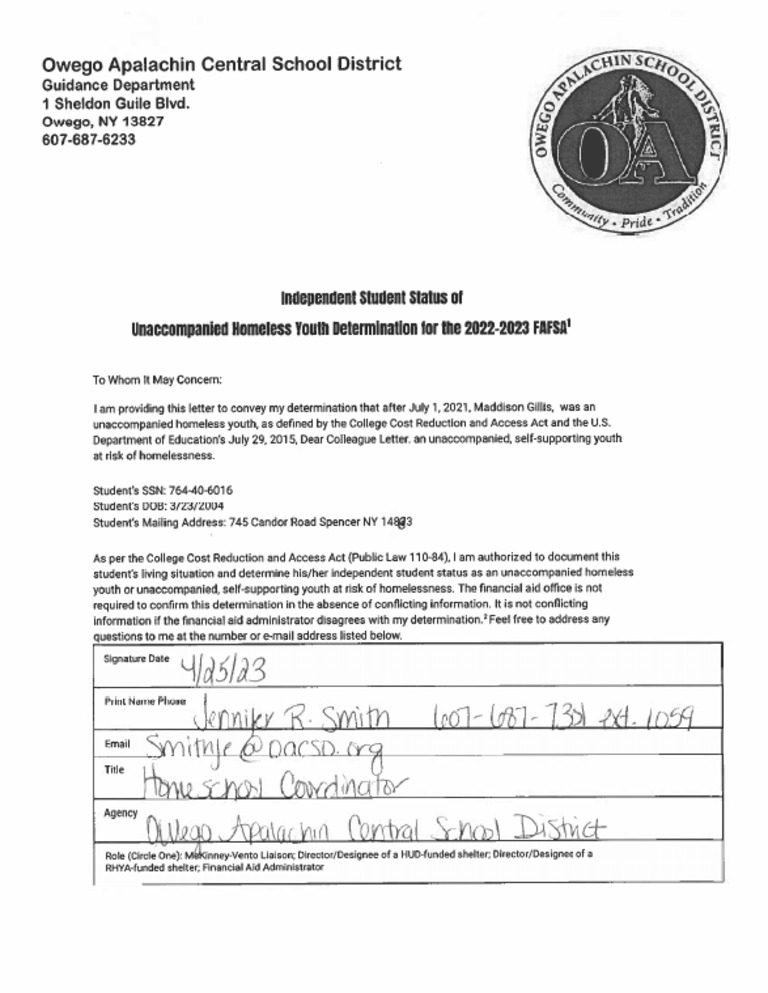 Owego Apalachin Central School District
Guidance Department
1 Sheldon Guile Blvd.
Owego, NY 13827
607-687-6233
OWEGO APALACHIN SCHOOL DISTRICT
OA
Community • Pride • Tradition
Independent Student Status of
Unaccompanied Homeless Youth Determination for the 2022-2023 FAFSA¹
To Whom It May Concern:
I am providing this letter to convey my determination that after July 1, 2021, Maddison Gillis, was an
unaccompanied homeless youth, as defined by the College Cost Reduction and Access Act and the U.S.
Department of Education's July 29, 2015, Dear Colleague Letter. an unaccompanied, self-supporting youth
at risk of homelessness.
Student's SSN: 764-40-6016
Student's DOB: 3/23/2004
Student's Mailing Address: 745 Candor Road Spencer NY
As per the College Cost Reduction and Access Act (Public Law 110-84), I am authorized to document this
student's living situation and determine his/her independent student status as an unaccompanied homeless
youth or unaccompanied, self-supporting youth at risk of homelessness. The financial aid office is not
required to confirm this determination in the absence of conflicting information. It is not conflicting
information if the financial aid administrator disagrees with my determination.² Feel free to address any
questions to me at the number or e-mail address listed below.
Signature Date 4/25/23
Print Name Phone Jennifer R. Smith ext. 1059
Email Smithje@oacsd.org
Title Homeschool Coordinator
Agency Owego Apalachin Central School District
Role (Circle One): McKinney-Vento Liaison; Director/Designee of a HUD-funded shelter; Director/Designee of a
RHYA-funded shelter; Financial Aid Administrator